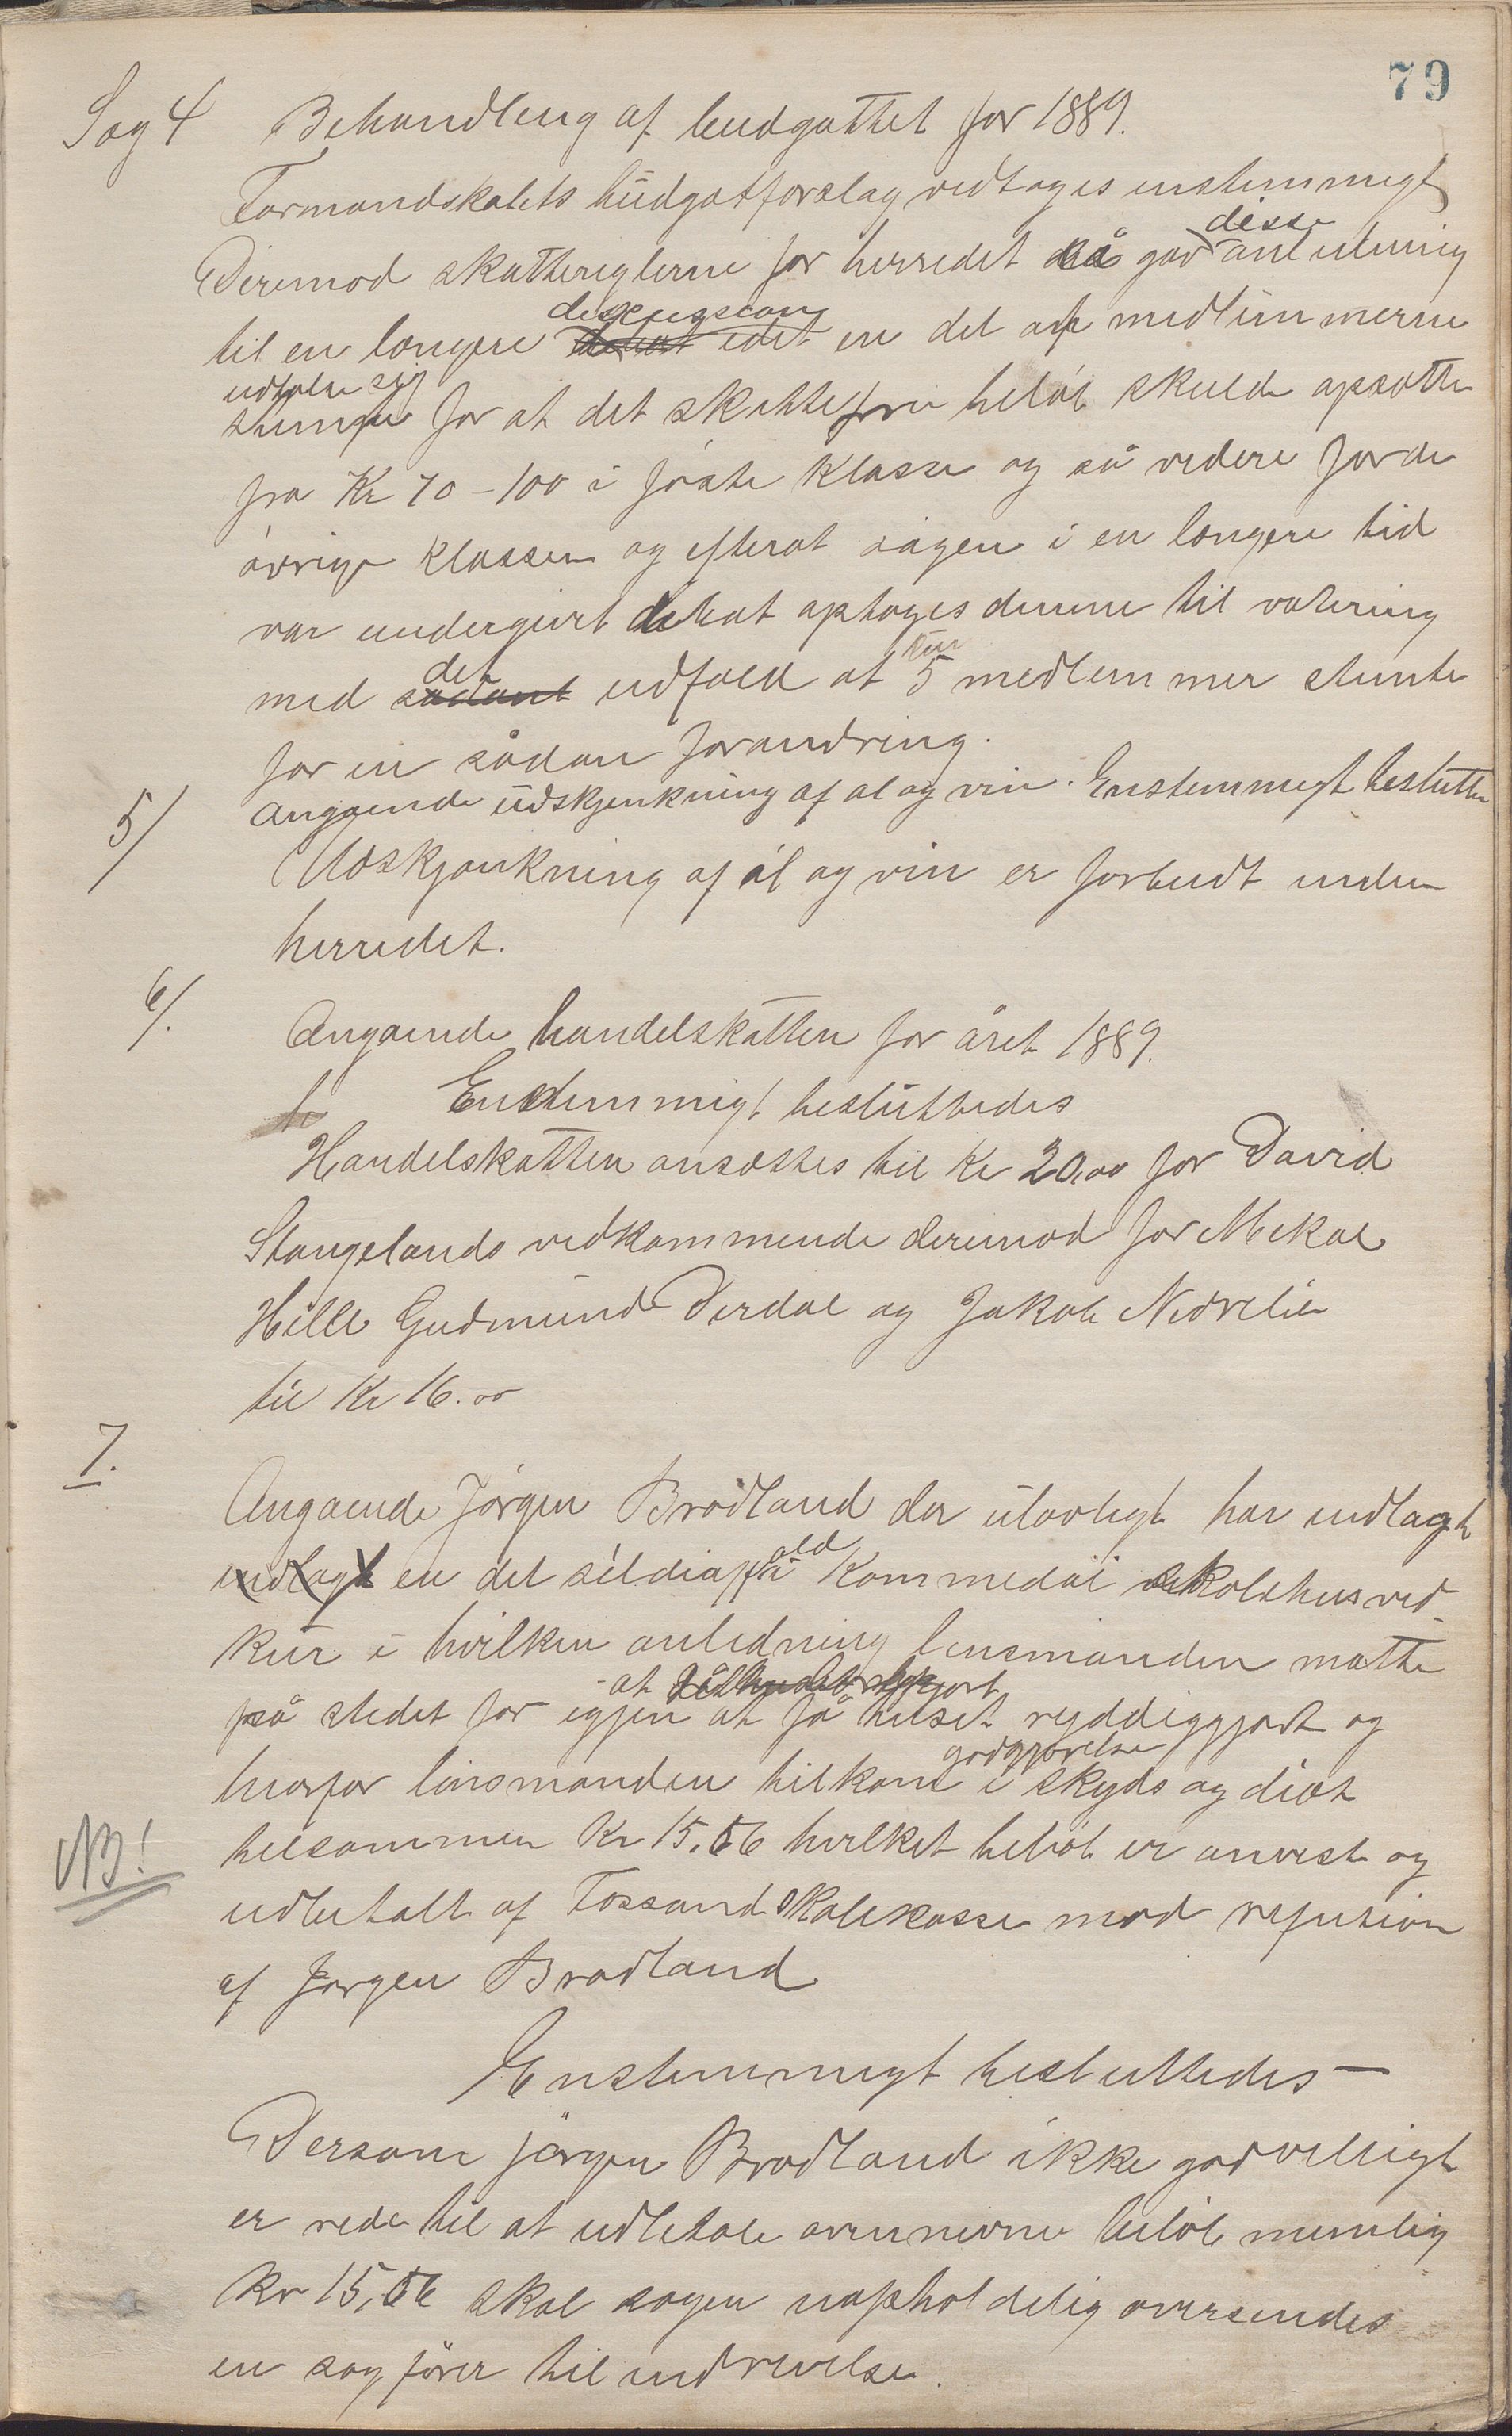 79
Sag 4 Behandling af budgættet for 1889.
Formandskabets budgætforslag vedtoges enstemmigt
Derimod skattereglerne for herredet så gav disse anledning
til en længere discussion idet en del af medlemmerne
udtalte sig for at det skattefrie beløb skulde opsætte
fra Kr 70-100 i første klasse og så vedere for de
øvrige klasser og efterat sagen i en længere tid
var undergivet debat optoges denne til votering
med det udfald at kun 5 medlemmer stemte
for en sådan forandring.
5/ Angaaende udskjenkning af øl og vin. Enstemmigt beslutte
Udskjænkning af øl og vin er forbudt inden
herredet.
6/. Angaaende handelskatten for året 1889.
Enstemmigt besluttedes
Handelskatten ansættes til Kr 20,00 for David
Stangelands vedkommende derimod for Mikal
Hille Gudmund Dirdal og Jakob Nedrelie
til Kr 16.00
7. Angaaende Jørgen Brødland der ulovligt har indlagt
indlagt en del sild i Kommedal skolehusved
kur i hvilken anledning lensmanden møtte
på stedet for igjen at få huset ryddiggjort og
hvorfor lensmanden tilkom godtgjørelse i skyds og diæt
tilsammen Kr 15.56 hvilket beløb er anvist og
udbetalt af Fossand skolekasse mod refution
af Jørgen Brødland
NB!
Enstemmigt besluttedes —
Dersom Jørgen Brødland ikke godvilligt
er rede til at udbetale ovennevne beløb nemlig
Kr 15,56 skal sagen uopholdelig oversendes
en sagfører til inddrivelse.